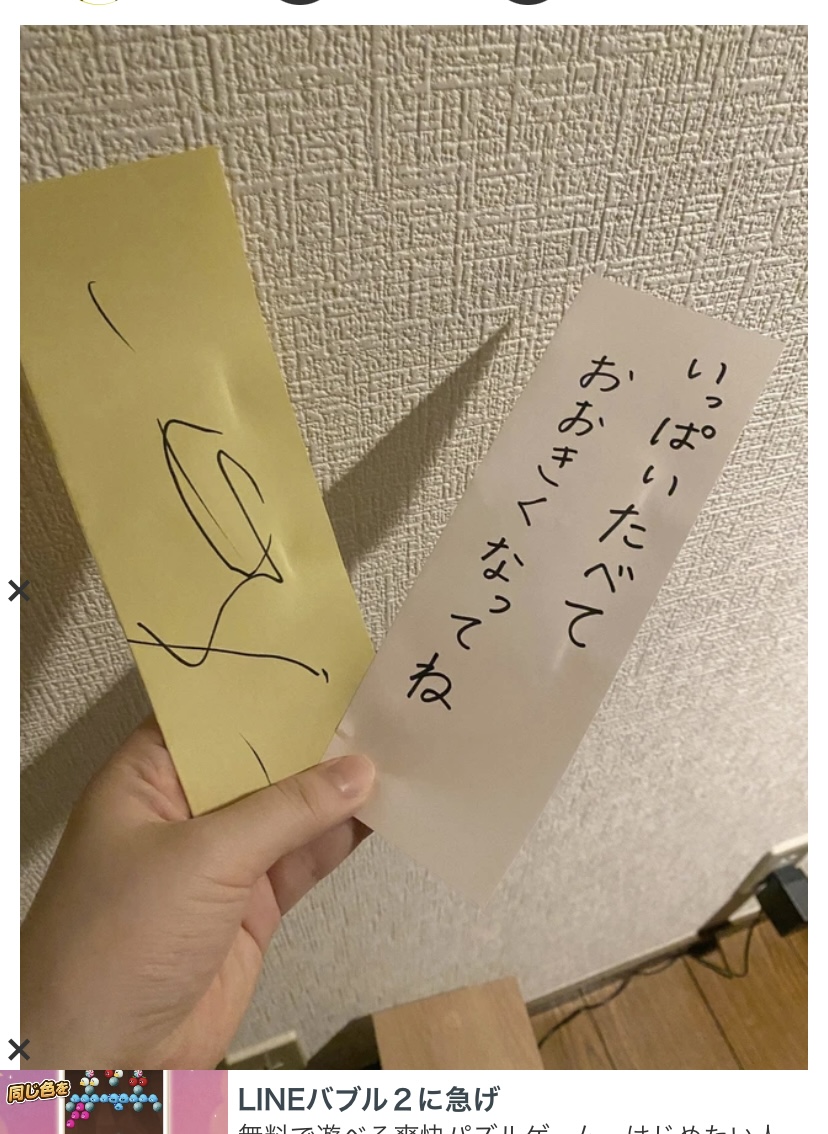 いっぱいたべて
おおきくなってね
同じ色を
LINEバブル２に急げ
無料で遊べる爽快パズルゲーム。はじめたい人